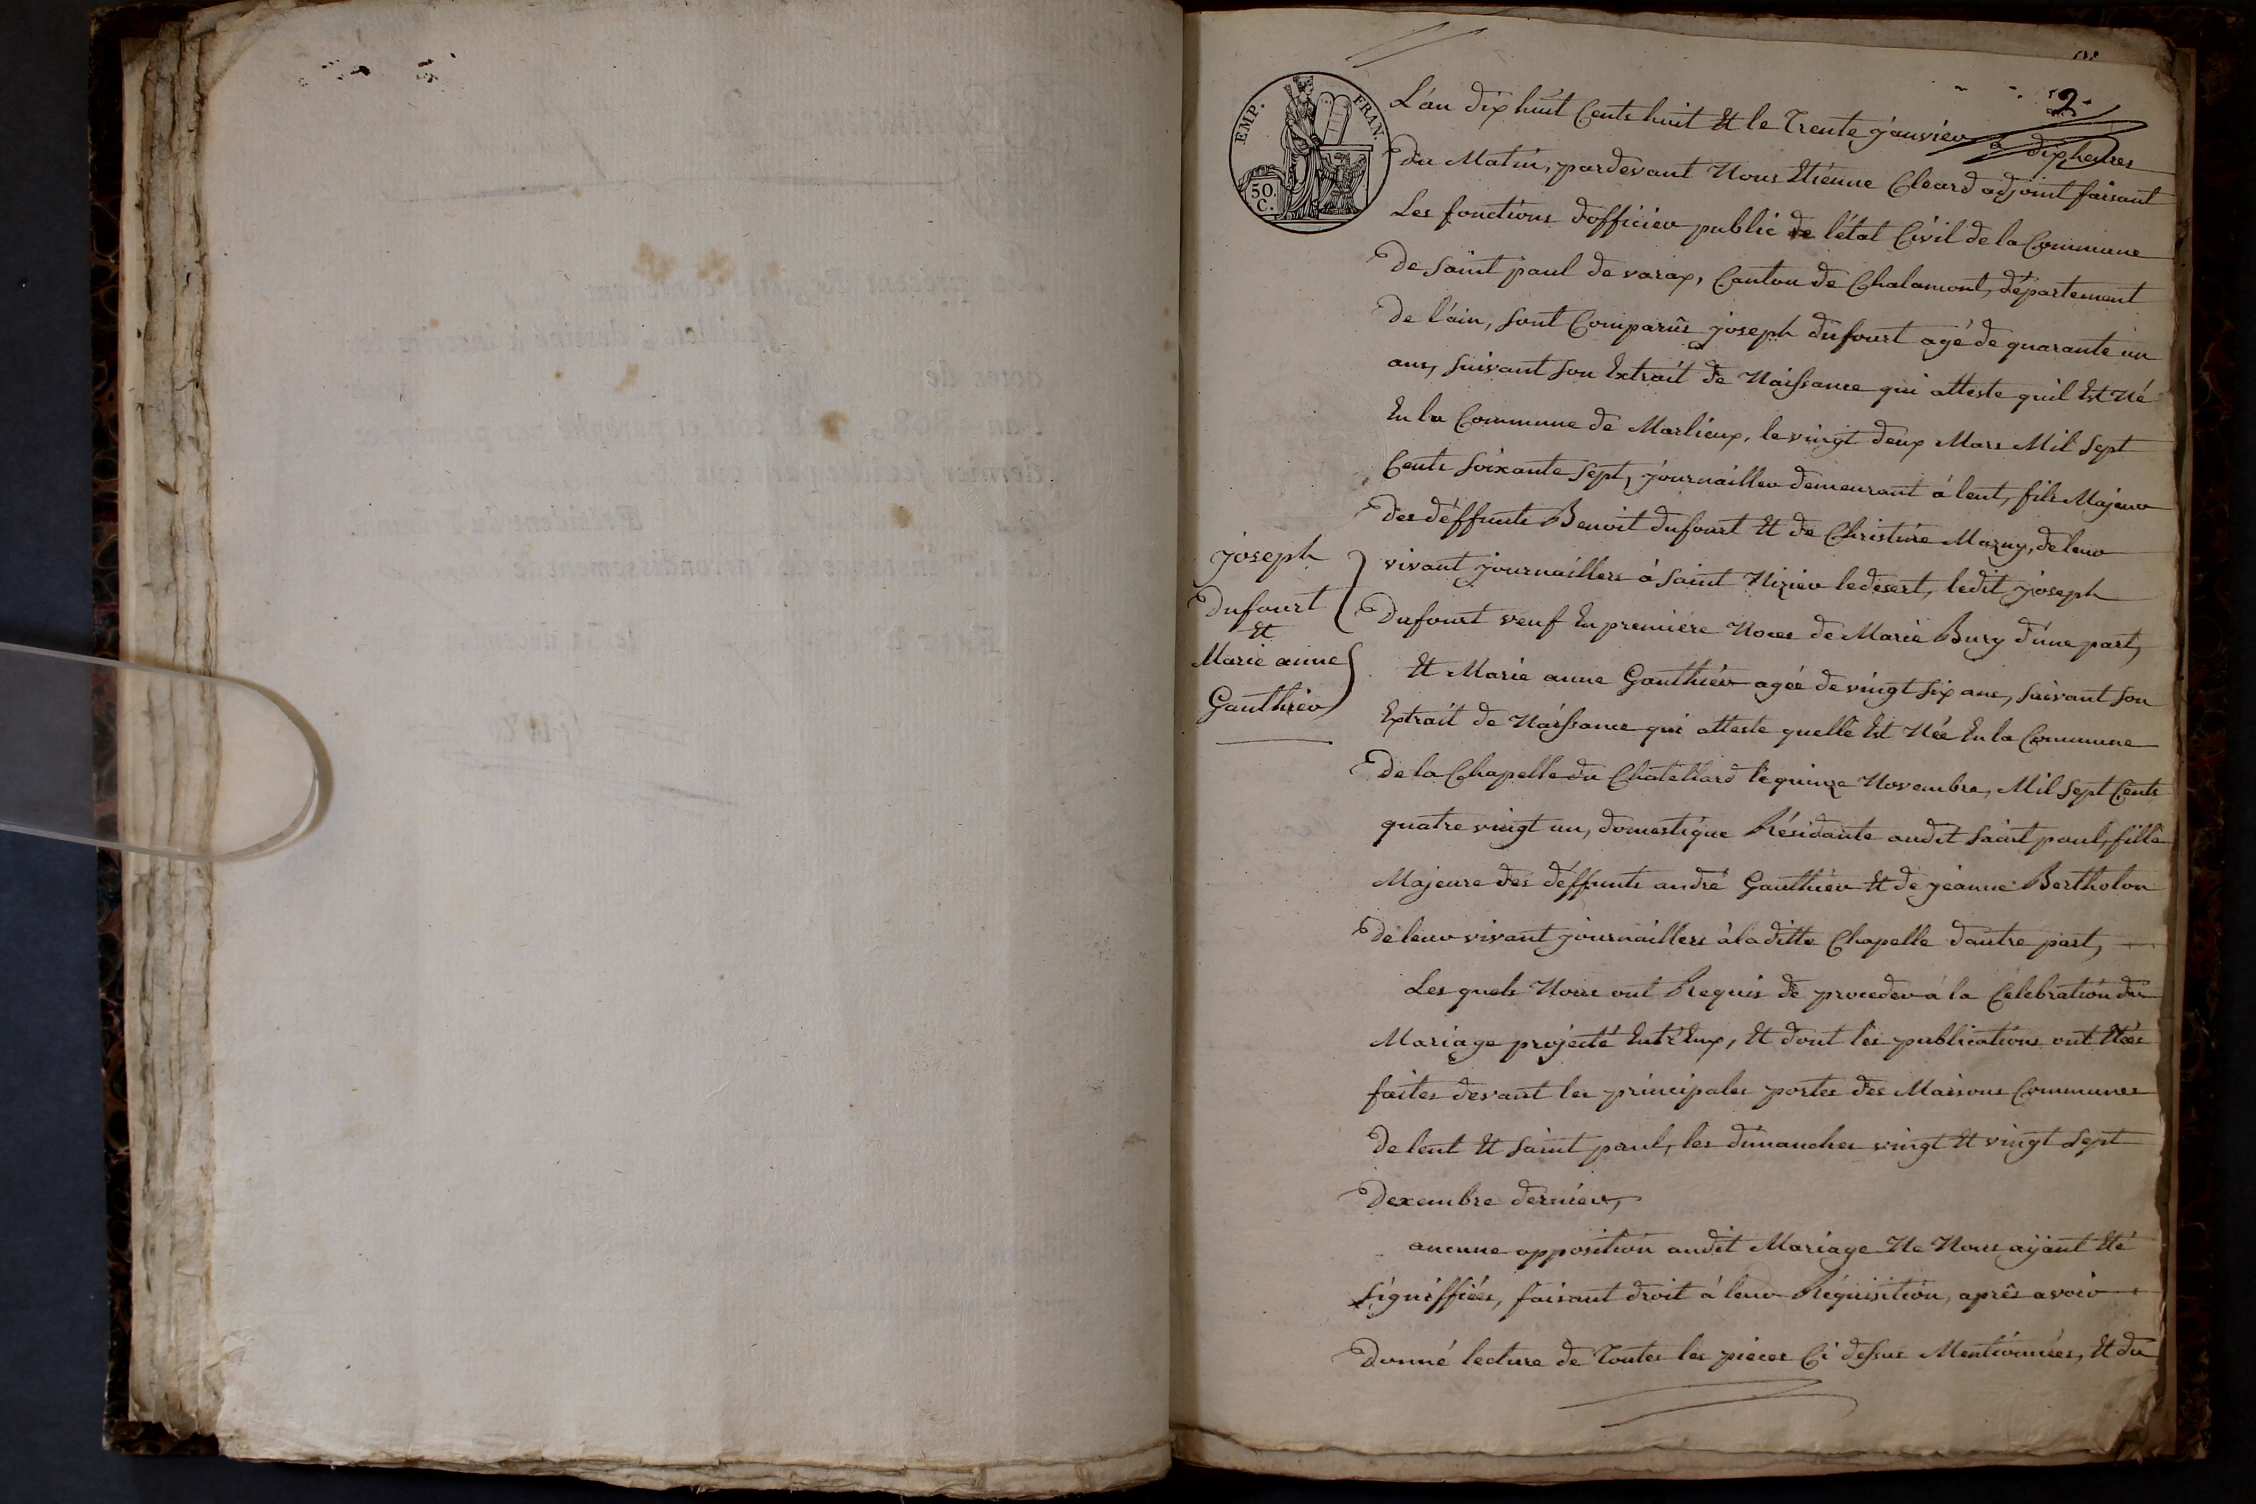 2
EMP. FRAN.
50. C.
L'an dix huit Cents huit Et le Trente janvier a dix heures
du Matin, pardevant Nous Etiénne Cleard adjoint faisant
Les fonctions d'officier public de l'état Civil de la Commune
De saint paul de varax, Canton de Chalamont, département
De l'ain, sont Comparûs joseph dufourt agé de quarante un
ans, suivant son Extrait de Naissance qui atteste quil Est Né
En la Commune de Marlieux, le vingt deux Mars Mil Sept
Cents soixante sept, journaillier demeurant á lent, fils Majeur
des déffunts Benoit dufourt Et de Christine Mazuy, de leur
vivant journailliers á saint Nizier le désert, ledit joseph
Dufourt veuf En premiere Noces de Marie Buzy d'une part,
joseph
Dufourt
Et
Marie anne
Gauthier
Et Marie anne Gauthiér agée de vingt six ans, suivant son
Extrait de Naissance qui atteste quelle Est Née En la Commune
De la Chapelle du Chatellard le quinze Novembre, Mil Sept Cents
quatre vingt un, domestique Résidante audit saint paul, fille
Majeure des déffunts andré Gauthier Et de jéanne Bertholon
De leur vivant journailliers á la ditte Chapelle d'autre part,
Les quels Nous ont Requis de proceder á la Célebration du
Mariage projetté Entr'Eux, Et dont les publications ont Etées
faites devant les principales portes des Maisons Communes
De lent Et saint paul, les dimanches vingt Et vingt sept
Dexembre dernier,
aucune opposition audit Mariage Ne Nous ayant Eté
signiffiées, faisant droit á leur Réquisition, aprês avoir
Donné lecture de Toutes les pieces Ci dessus Mentionnées, Et du